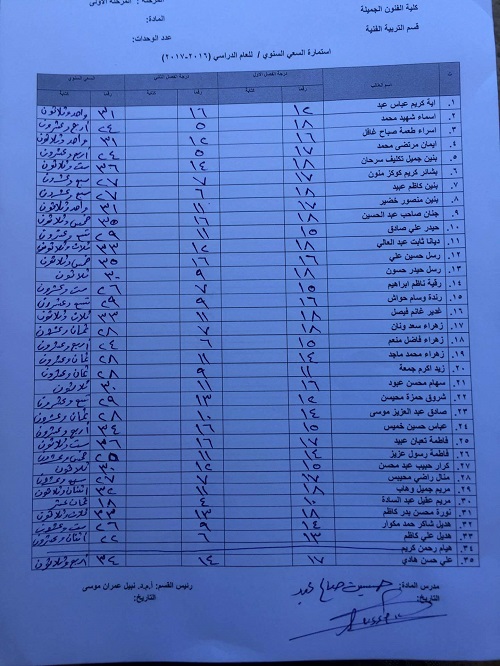 كلية الفنون الجميلة
قسم التربية الفنية
المرحلة : المرحلة الاولى
المادة:
عدد الوحدات:
استمارة السعي السنوي / للعام الدراسي (٢٠١٦-٢٠١٧)
ت اسم الطالب درجة الفصل الاول درجة الفصل الثاني السعي السنوي
رقما كتابة رقما كتابة رقما كتابة
١. اية كريم عباس عبد ١٢ ١٦ ٣١ واحد وثلاثون
٢. اسماء شهيد محمد ١٨ ٥ ٢٤ اربع وعشرون
٣. اسراء طعمة صباح غافل ١٦ ١٢ ٣١ واحد وثلاثون
٤. ايمان مرتضى محمد ١٧ ٥ ٢٤ اربع وعشرون
٥. بنين جميل تكليف سرحان ١٨ ١٤ ٣٦ ست وثلاثون
٦. بشائر كريم كوكز ملون ١٧ ٧ ٢٧ سبع وعشرون
٧. بنين كاظم عبيد ١٨ ٦ ٢٧ سبع وعشرون
٨. بنين منصور خضير ١٧ ١١ ٣١ واحد وثلاثون
٩. جنان صاحب عبد الحسين ١٨ ١٦ ٣٥ خمس وثلاثون
١٠. حيدر علي صادق ١٥ ١١ ٢٩ تسع وعشرون
١١. ديانا ثابت عبد العالي ١٨ ١٢ ٣٣ ثلاث وثلاثون
١٢. رسل حسين علي ١٦ ١٦ ٣٥ خمس وثلاثون
١٣. رسل حيدر حسون ١٨ ٩ ٣٠ ثلاثون
١٤. رقية ناظم ابراهيم ١٥ ٧ ٢٦ ست وعشرون
١٥. رندة وسام حواش ١٦ ٩ ٢٩ تسع وعشرون
١٦. غدير غانم فيصل ١٨ ١١ ٣٣ ثلاث وثلاثون
١٧. زهراء سعد ونان ١٨ ٧ ٢٨ ثمان وعشرون
١٨. زهراء فاضل منعم ١٥ ٦ ٢٤ اربع وعشرون
١٩. زهراء محمد ماجد ١٤ ١١ ٢٨ ثمان وعشرون
٢٠. زيد اكرم جمعة ١١ ٩ ٢٨ ثمان وعشرون
٢١. سهام محسن عبود ١٦ ١١ ٣٠ ثلاثون
٢٢. شروق حمزة محيسن ١٢ ١٣ ٢٩ تسع وعشرون
٢٣. صادق عبد العزيز موسى ١٤ ١٠ ٢٨ ثمان وعشرون
٢٤. عباس حسين خميس ١٥ ١٦ ٣٤ اربع وثلاثون
٢٥. فاطمة نعبان عبيد ١٧ ١٦ ٣٦ ست وثلاثون
٢٦. فاطمة رسول عزيز ١٤ ١١ ٢٥ خمس وعشرون
٢٧. كرار حبيب عبد محسن ١٥ ١٢ ٣٠ ثلاثون
٢٨. منال راضي محيبس ١٧ ٧ ٢٧ سبع وعشرون
٢٩. مريم جميل وهاب ١٨ ١١ ٣٢ اثنتان وثلاثون
٣٠. مريم عقيل عبد السادة ١٠ ٤ ١٨ ثمان عشر
٣١. نورة محسن بدر كاظم ١٨ ١٣ ٣٣ ثلاث وثلاثون
٣٢. هديل شاكر حمد مكوار ١٤ ٩ ٢٦ ست وعشرون
٣٣. هديل علي كاظم ١٣ ٦ ٢٢ اثنان وعشرون
٣٤. هيام رحمن كريم
٣٥. علي حسن هادي ١٧ ١٤ ٣٤ اربع وثلاثون
مدرس المادة: حسين صباح عبد
التاريخ:
رئيس القسم: أ.م.د. نبيل عمران موسى
التاريخ: